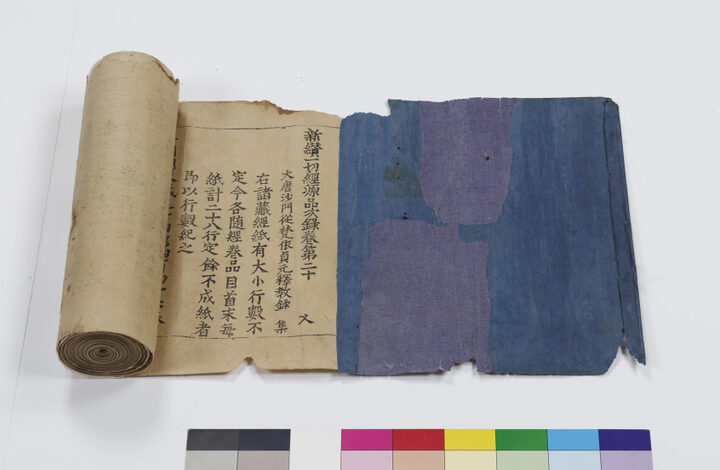 新纘一切經源品次錄卷第二十 又
大唐沙門從梵依貞元釋教錄 集
右諸藏經紙有大小行數不
定今各随經卷品目首末每
紙計二十八行定餘不成紙者
即以行數紀之